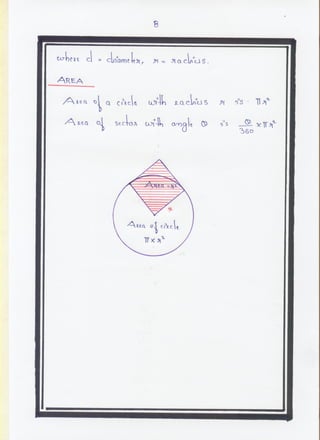 8
where d = diameter, r = radius.
AREA
Area of a circle with radius r is πr²
Area of sector with angle θ is θ/360 × πr²
Area = r²
r
Area of circle
π × r²